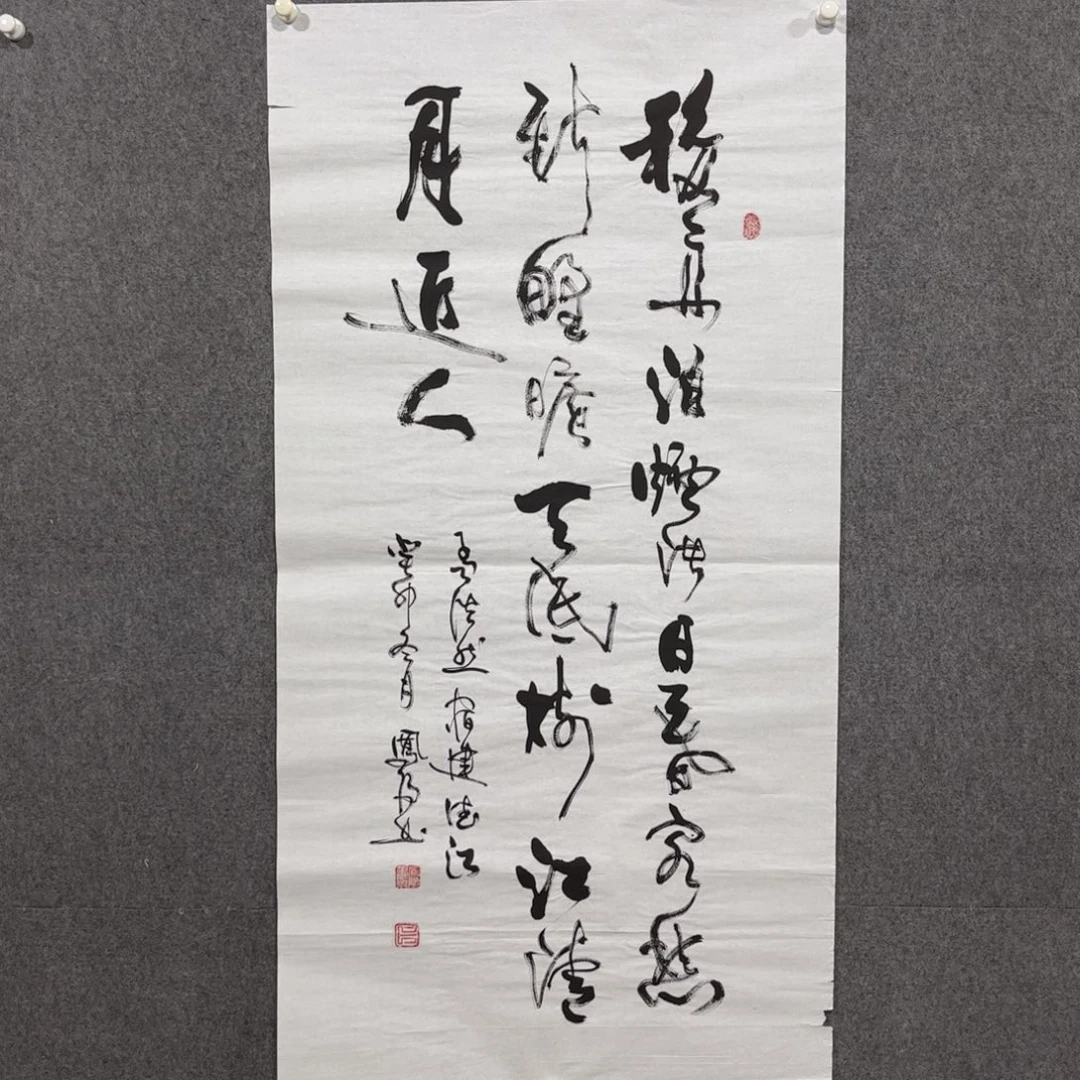 移舟泊煙渚日暮客愁
新野曠天低樹江清
月近人
孟浩然宿建德江
癸卯冬月鳳书